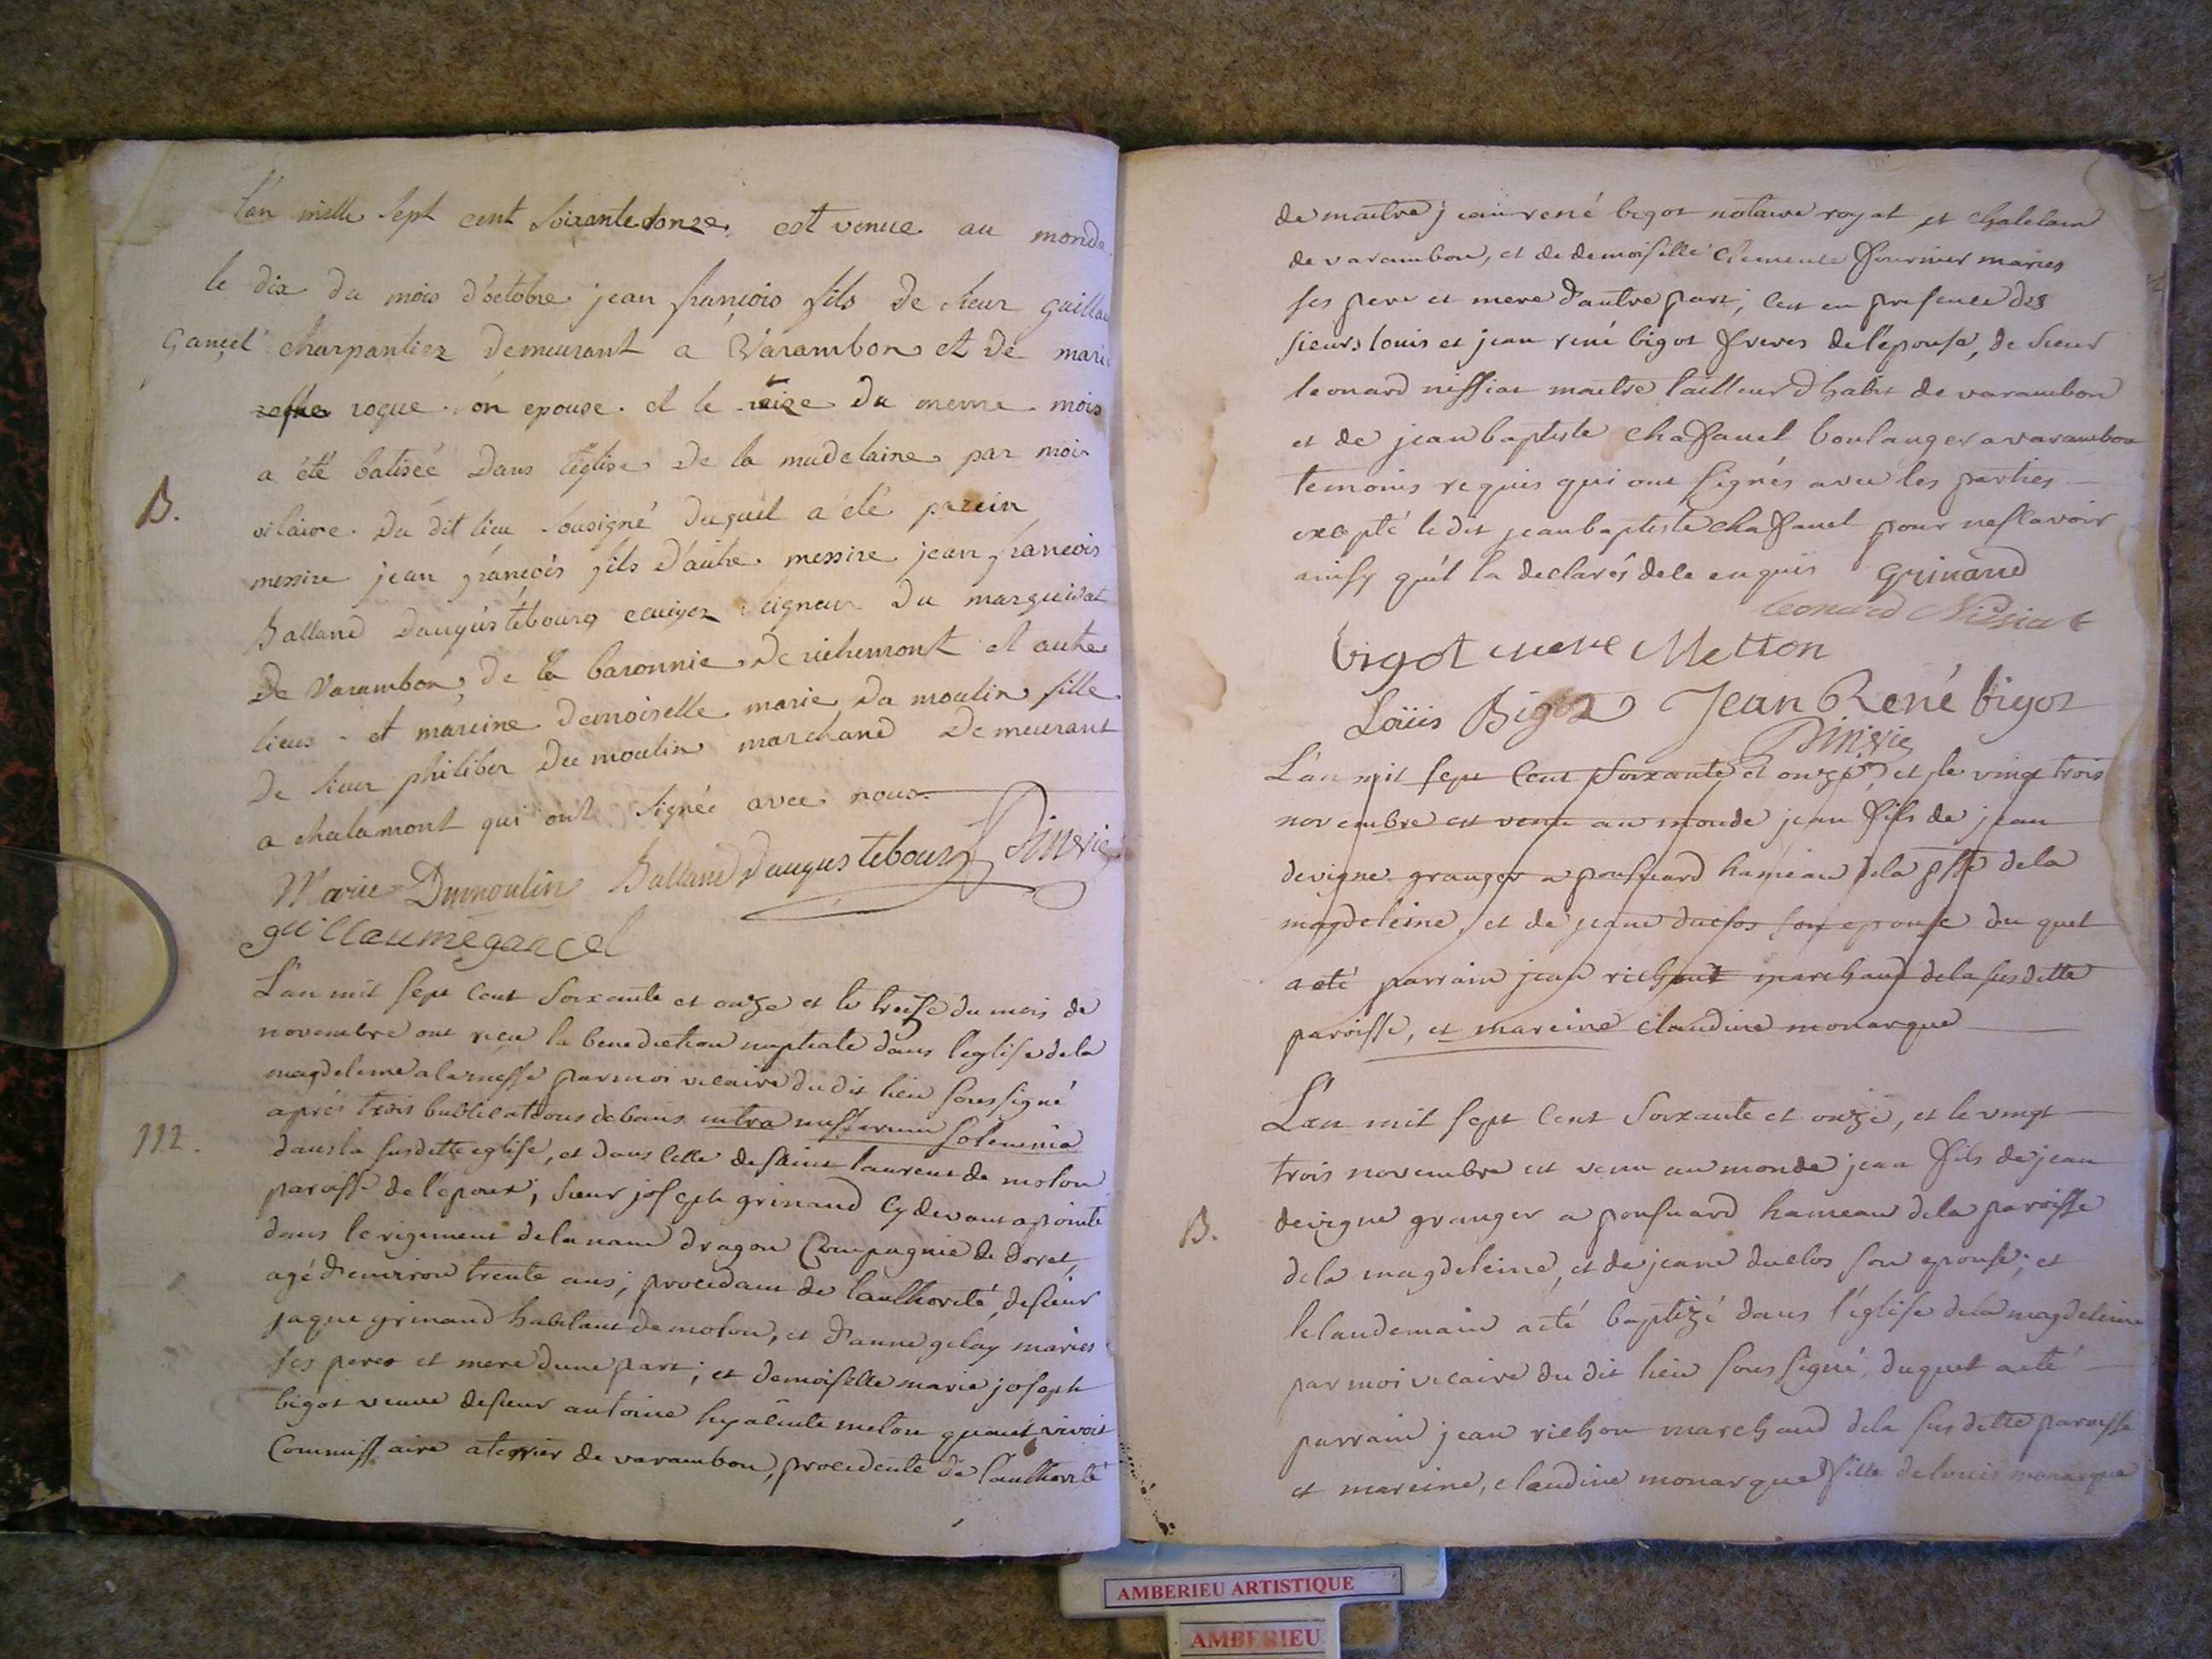 L'an mille sept cent soixante donze est venue au monde
le dix du mois d'octobre jean françois fils de sieur guillau
gançel charpantiez demeurant a Varambon et de marie
rogue son epouse et le treize du meme mois
a été batiséé dans l'église de la madelaine par moi
B. vilaire du dit lieu sousigné duquel a été parein
messire jean françois fils d'autre messire jean françois
Balland daugustebourg ecuiyez seigneur du marquisat
de Varambon, de la baronnie de richemont et autre
lieus et mareine demoiselle marie du moulin fille
de sieur philiber du moulin marchand demeurant
a chalamont qui ont signée avec nous
Marie Dumoulin Balland Daugustebourg
guillaume gancel
L'an mil sept cent soixante et onze et le treise du mois de
novembre ont reçu la benediction nuptiale dans l'eglise dela
magdeleine a la messe par moi vicaire du dit lieu soussigné
aprés trois bublications de bans intra missarum solemnia
112. dans la susditte eglise, et dans celle de saint laurent de molon
paroisse de l'epoux; sieur joseph grinand cy devant apointé
dans le regiment de la nam dragon Compagnie de Doret,
agé d'environ trente ans; procedant de lauthorité de sieur
jaque grinand habitant de molon, et d'anne gelay mariés
ses peres et mere dune part; et demoiselle marie joseph
bigot veuve de sieur antoine hyacinte meton quand vivoit
Commissaire a terrier de varambon, procedente de lauthorité
de maitre jean rené bigot notaire royal et chatelain
de varambon, et de demoiselle Clemence fournier mariés
ses pere et mere d'autre part; cest en presence des
sieurs louis et jean rené bigot freres de l'epouse, de sieur
leonard nissiat maitre tailleur d'habit de varambon
et de jean baptiste chaffanel boulanger a varambon
temoins requis qui ont signés avec les parties
excepté le dit jean baptiste chaffanel pour ne scavoir
ainsy qu'il la declarés de ce enquis grinand
Leonard Nissiat
bigot veuve Metton
Loüis Bigot Jean René bigot
L'an mil sept cent soixante et onze, et le vingt trois
novembre est venu au monde jean fils de jean
devigne granger a ponsuard hameau dela psse dela
magdeleine, et de jeane duclos son epouse du quel
a eté parrain jean richout marchand dela susditte
paroisse, et mareine claudine monarque
L'an mil sept cent soixante et onze, et le vingt
trois novembre est venu au monde jean fils de jean
B. devigne granger a ponsuard hameau dela paroisse
dela magdeleine, et de jeane duclos son epouse; et
le landemain a eté baptizé dans l'église dela magdeleine
par moi vicaire du dit lieu soussigné, duquel a eté
parrain jean richon marchand dela susditte paroisse
et mareine, claudine monarque fille de louis monarque
AMBERIEU ARTISTIQUE
AMBERIEU